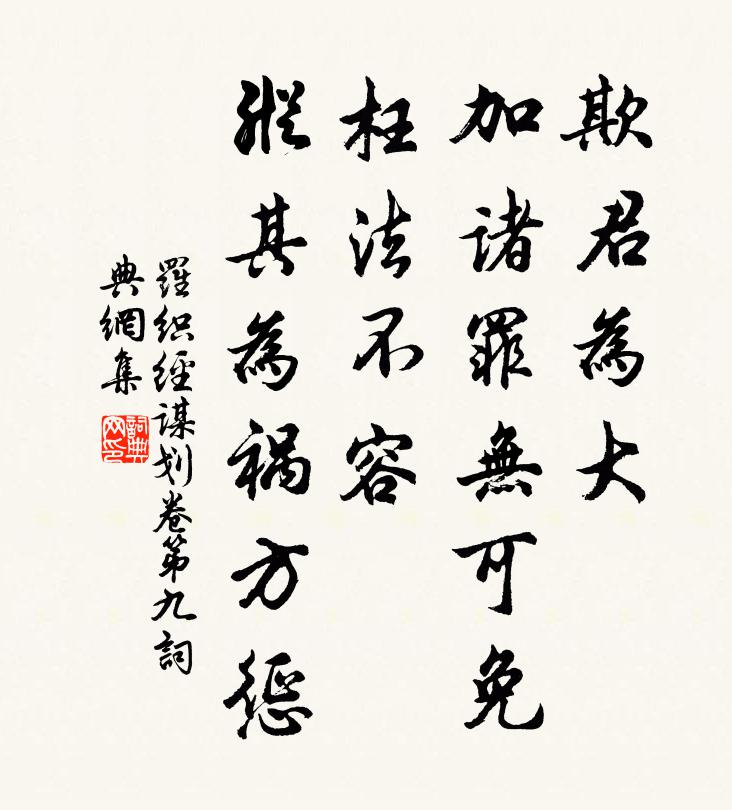 欺君為大
加诸罪無可免
枉法不容
縱其為祸方惩
羅织經谋划卷第九詞
典網集
詞典网印